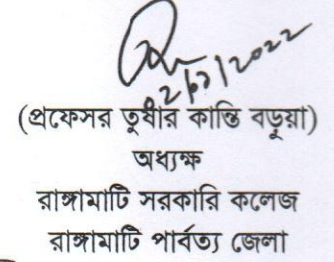 02/01/2022
(প্রফেসর তুষার কান্তি বড়ুয়া)
অধ্যক্ষ
রাঙ্গামাটি সরকারি কলেজ
রাঙ্গামাটি পার্বত্য জেলা